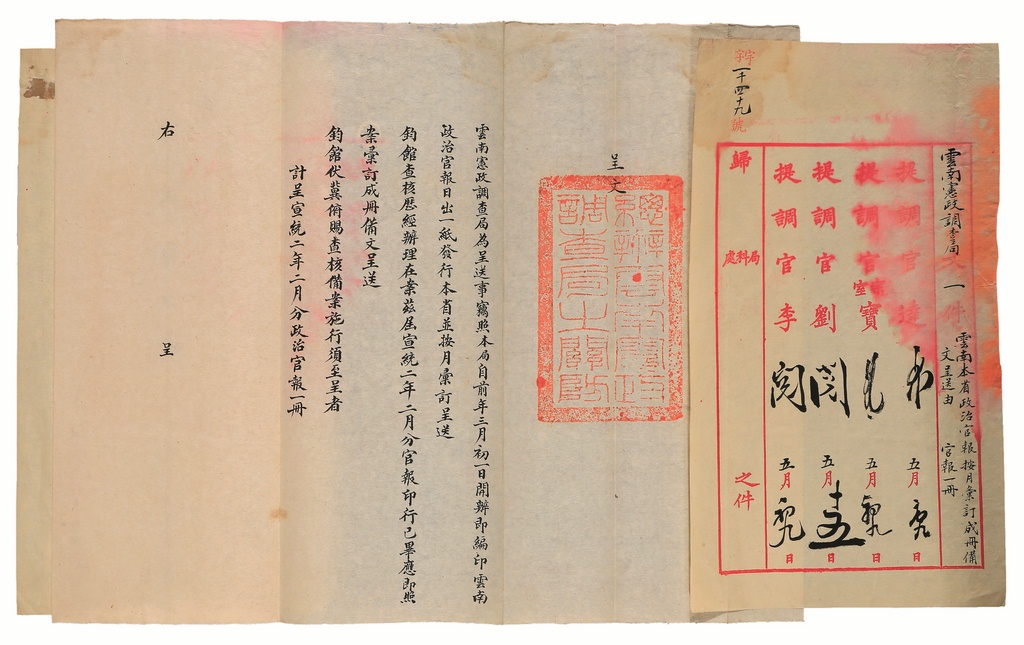 字
一千四十九
號
雲南憲政調查局
文一件
雲南本省政治官報按月彙訂成冊備
文呈送由
官報一冊
提調官達
提調官寶
提調官劉
閱
提調官李
閱
五月
日
五月
日
五月
十五
日
五月
日
歸
局科處
之件
呈文
雲南憲政調查局為呈送事竊照本局自前年三月初一日開辦即編印雲南
政治官報日出一紙發行本省並按月彙訂呈送
鈞館查核歷經辦理在案茲屆宣統二年二月分官報印行已畢應即照
案彙訂成冊備文呈送
鈞館伏冀俯賜查核備案施行須至呈者
計呈宣統二年二月分政治官報一冊
右呈